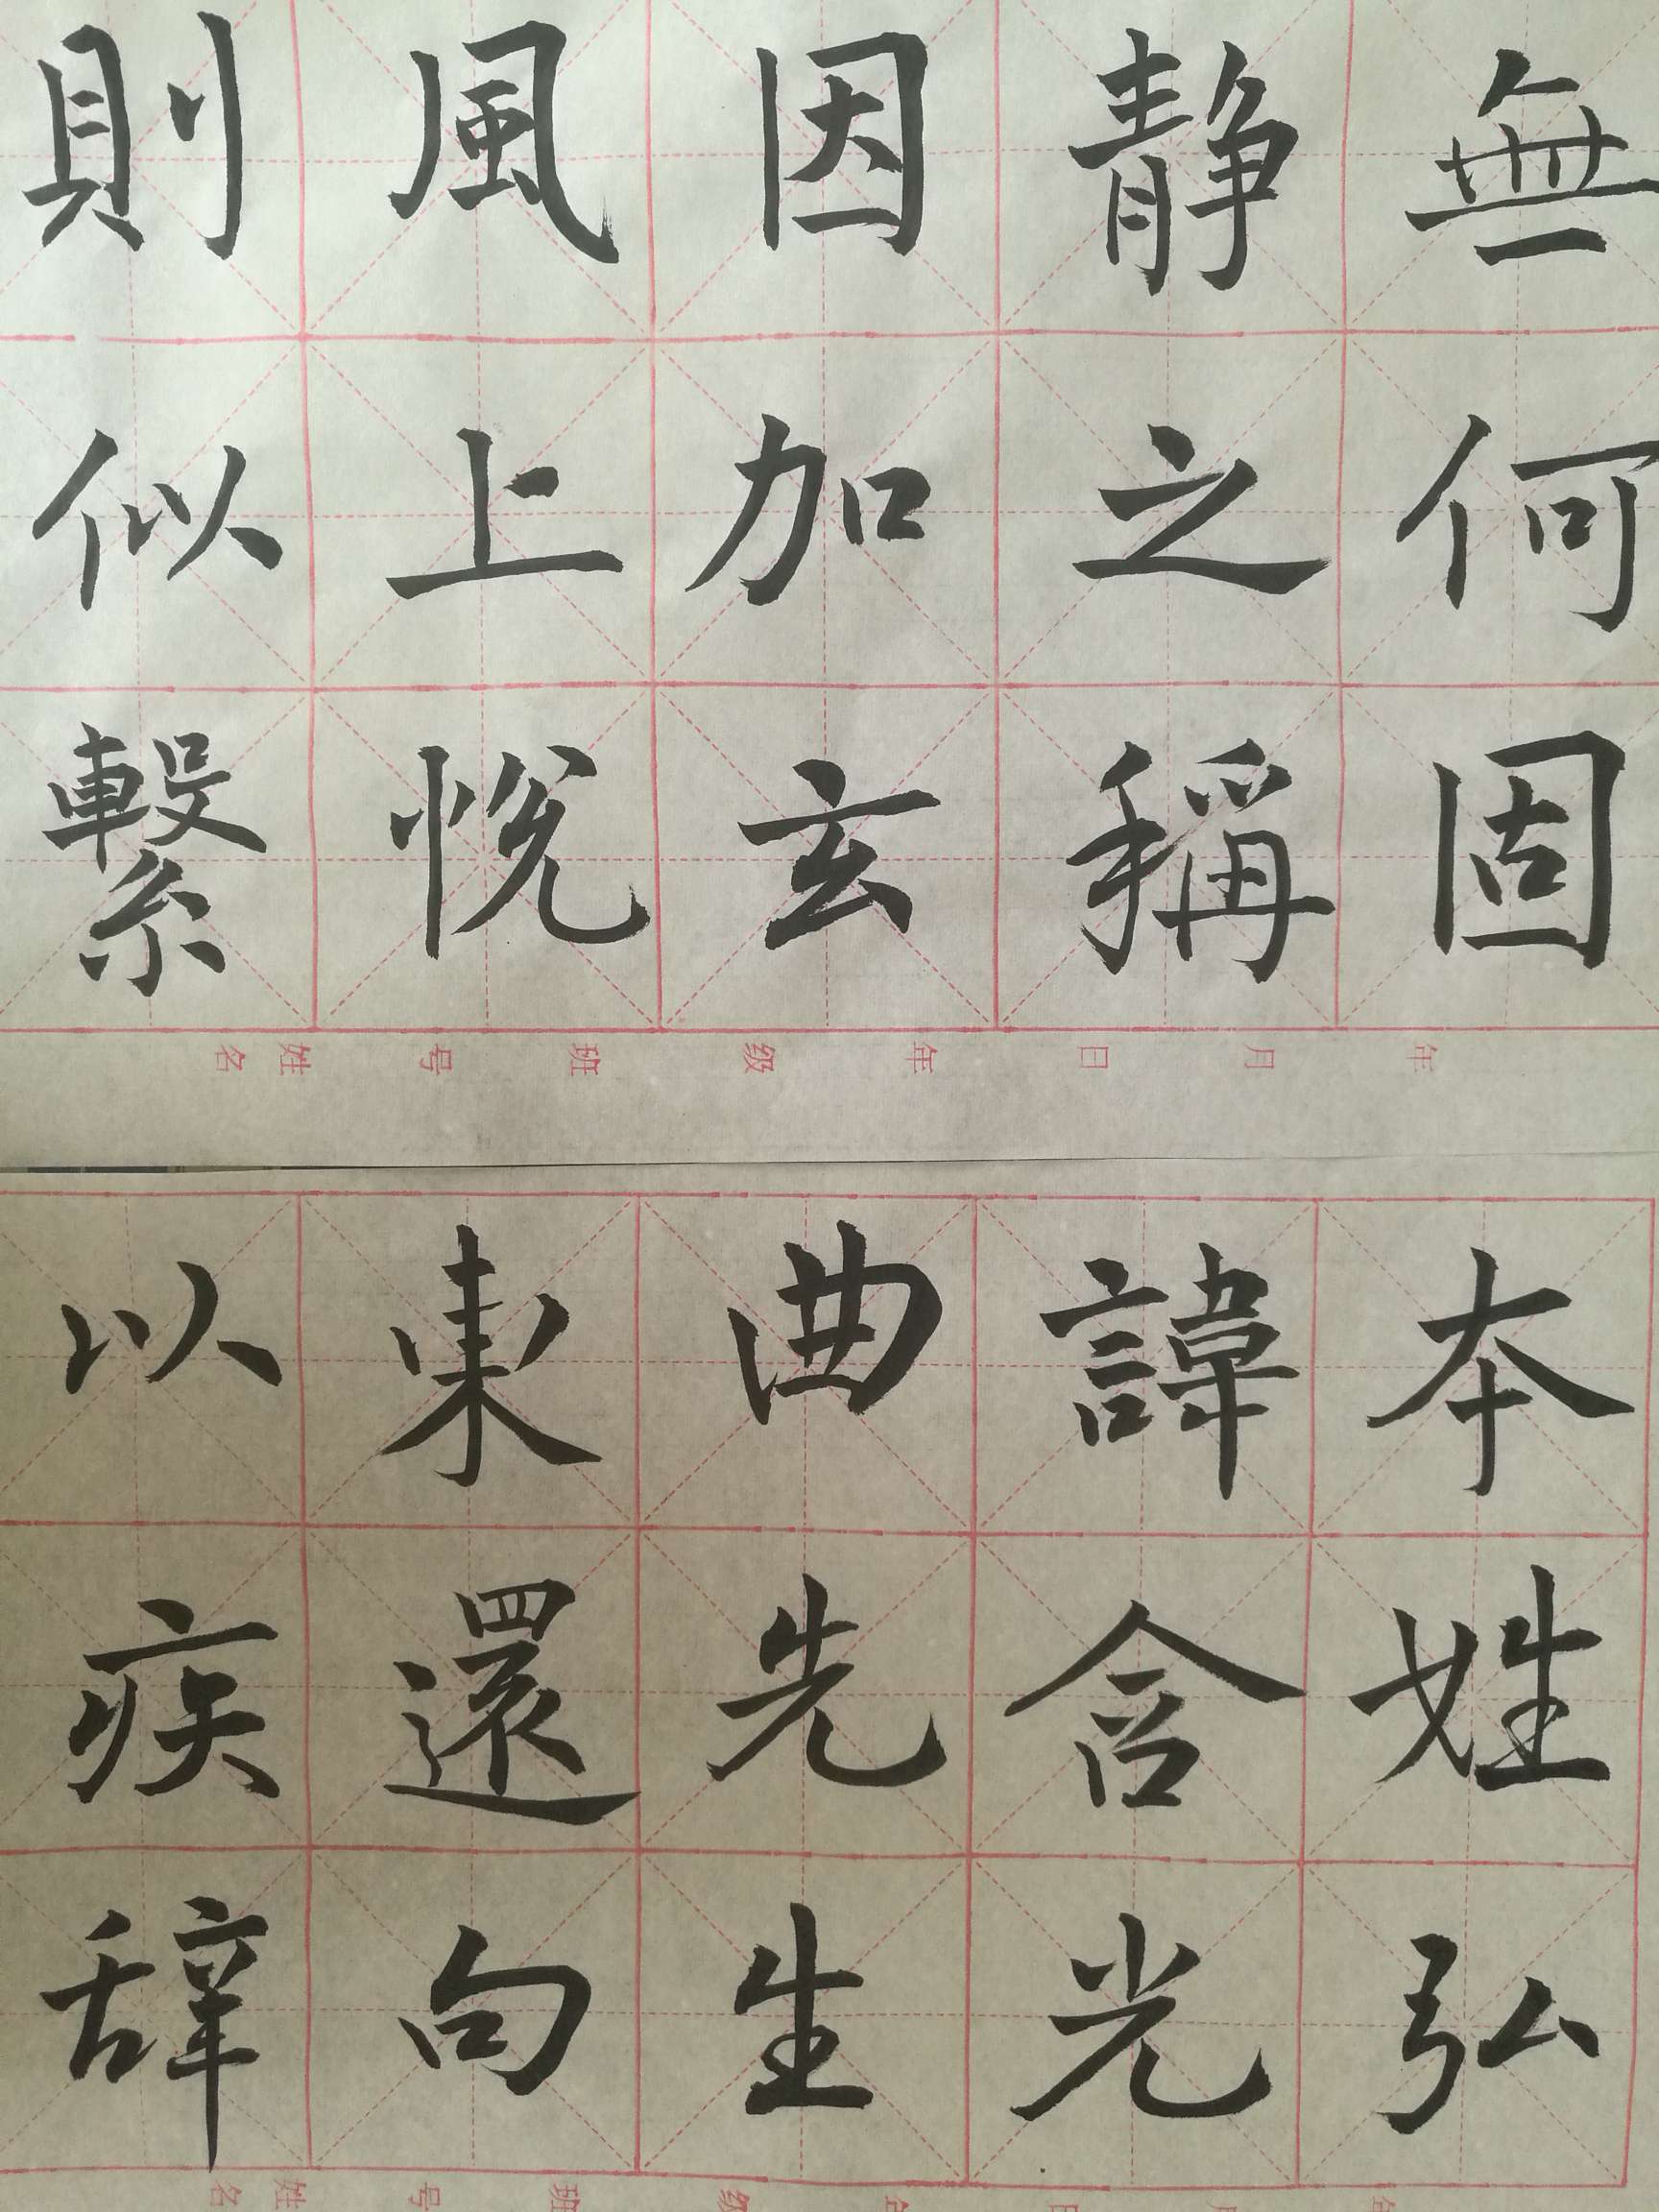 無何固
静之稱
因加玄
風上悅
則似繫
年月日年级班号姓名
本姓弘
諱含光
曲先生
東還句
以疾辞
年月日年级班号姓名